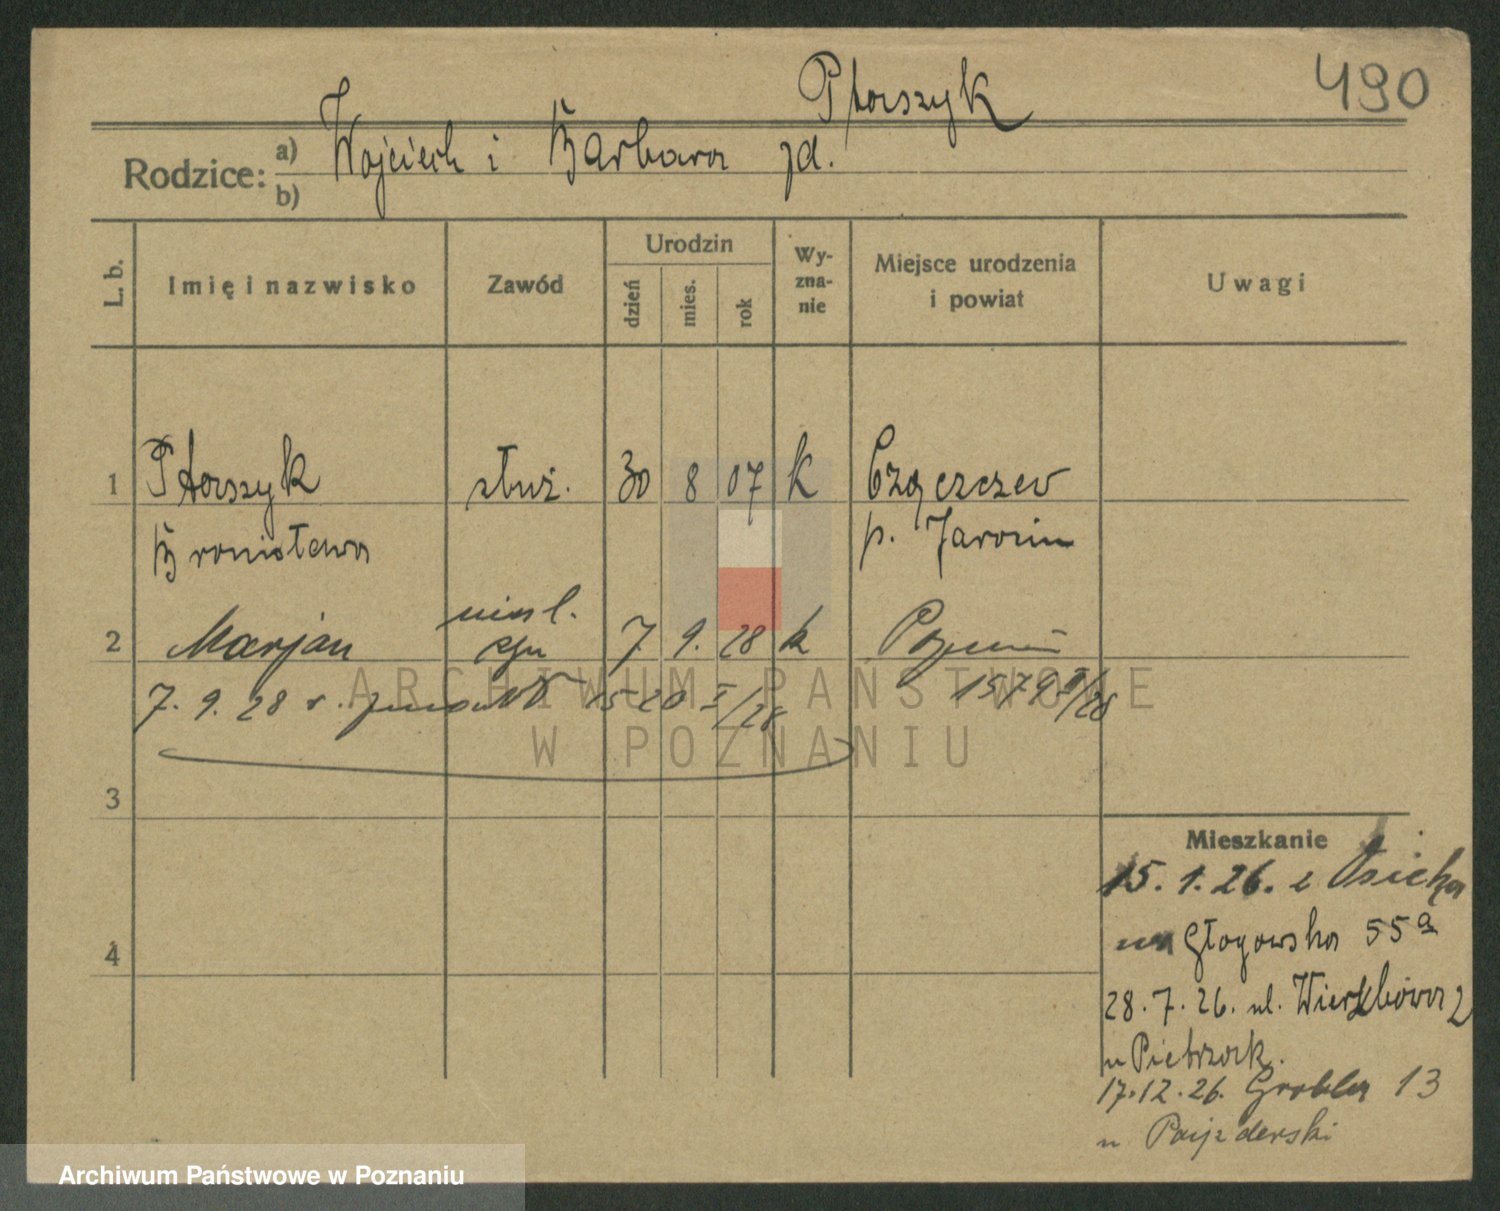 490
Ptaszyk
Rodzice: a) Wojciech i Barbara zd.
b)
L. b. Imię i nazwisko Zawód Urodzin dzień mies. rok Wyznanie Miejsce urodzenia i powiat Uwagi
1 Ptaszyk służ. 30 8 07 k Czączczew
Bronisława p. Jarocin
2 Marjan 7. 9. 28 k Poznań
7. 9. 28 1520 I/28 1579 II/28
3
4
Mieszkanie
15. 1. 26. z Osieka
Głogowska 55a
28. 7. 26. ul. Wierzbowa 2
u Pietrzak.
17.12.26. Grobla 13
u Pajzderski
ARCHIWUM PAŃSTWOWE
W POZNANIU
Archiwum Państwowe w Poznaniu